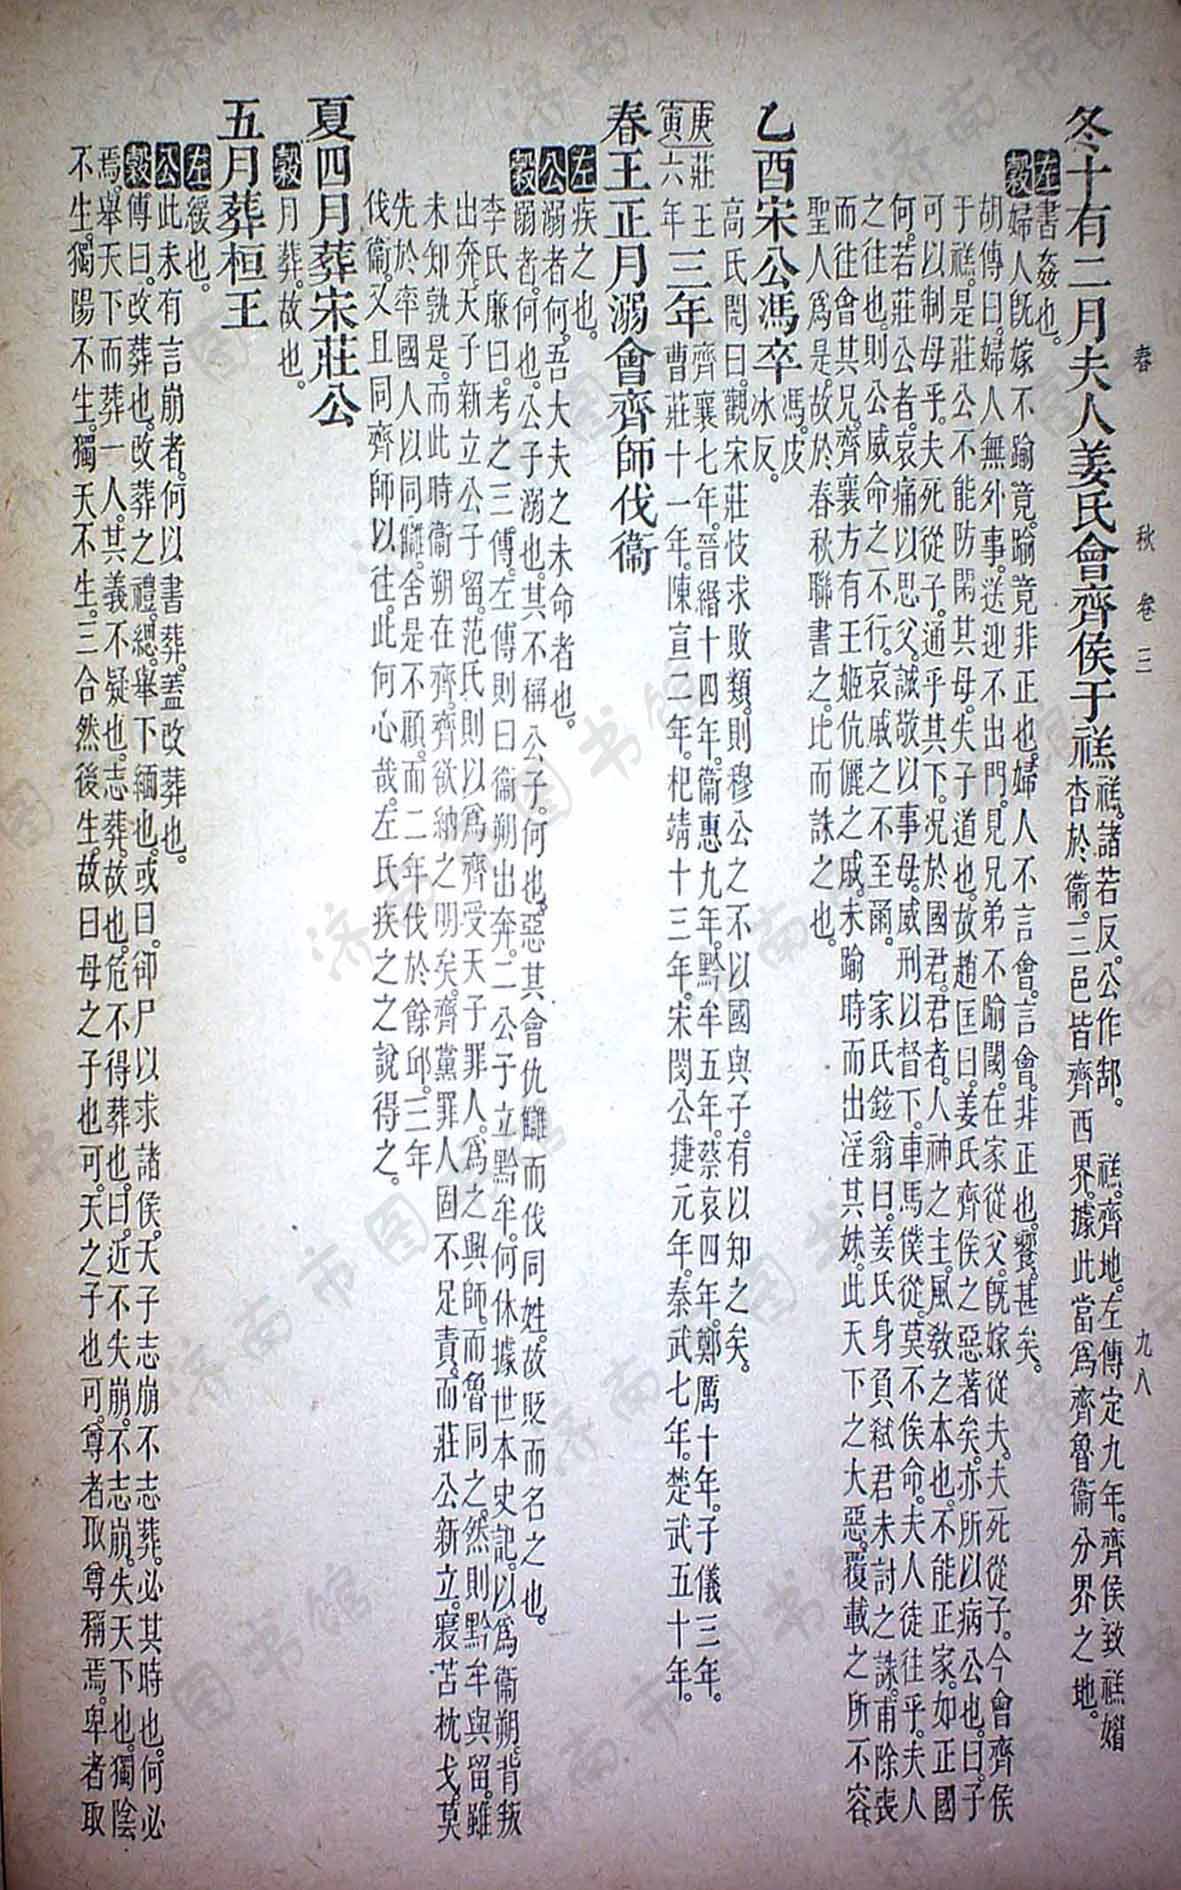 春 秋 卷三 九八
冬十有二月夫人姜氏會齊侯于禚禚。諸若反。公作郜。 禚。齊地。左傳定九年。齊侯致禚媚
杏於衞。三邑皆齊西界。據此當爲齊魯衞分界之地。
左書姦也。
穀婦人旣嫁不踰竟。踰竟非正也。婦人不言會。言會。非正也。饗。甚矣。
胡傳曰。婦人無外事。送迎不出門。見兄弟不踰閾。在家從父。旣嫁從夫。夫死從子。今會齊侯
于禚。是莊公不能防閑其母。失子道也。故趙匡曰。姜氏齊侯之惡著矣。亦所以病公也。曰。子
可以制母乎。夫死從子。通乎其下。況於國君。君者。人神之主。風敎之本也。不能正家。如正國
何。若莊公者。哀痛以思父。誠敬以事母。威刑以督下。車馬僕從。莫不俟命。夫人徒往乎。夫人
之往也。則公威命之不行。哀戚之不至爾。 家氏鉉翁曰。姜氏身負弑君未討之誅。甫除喪
而往會其兄。齊襄方有王姬伉儷之戚。未踰時而出淫其妹。此天下之大惡。覆載之所不容。
聖人爲是。故於春秋聯書之。比而誅之也。
乙酉宋公馮卒馮。皮冰反。
高氏閌曰。觀宋莊忮求敗類。則穆公之不以國與子。有以知之矣。
庚寅莊王六年三年齊襄七年。晉緡十四年。衞惠九年。黔牟五年。蔡哀四年。鄭厲十年。子儀三年。
曹莊十一年。陳宣二年。杞靖十三年。宋閔公捷元年。秦武七年。楚武五十年。
春王正月溺會齊師伐衞
左疾之也。
公溺者何。吾大夫之未命者也。
穀溺者。何也。公子溺也。其不稱公子。何也。惡其會仇讎而伐同姓。故貶而名之也。
李氏廉曰。考之三傳。左傳則曰衞朔出奔。二公子立黔牟。何休據世本史記。以爲衞朔。背叛
出奔。天子新立公子留。范氏則以爲齊受天子罪人。爲之興師。而魯同之。然則黔牟與留。雖
未知孰是。而此時衞朔在齊。齊欲納之明矣。齊黨罪人固不足責。而莊公新立。寢苫枕戈。莫
先於率國人以同讎。舍是不顧。而二年伐於餘邱。三年
伐衞。又且同齊師以往。此何心哉。左氏疾之之說得之。
夏四月葬宋莊公
穀月葬。故也。
五月葬桓王
左緩也。
公此未有言崩者。何以書葬。蓋改葬也。
穀傳曰。改葬也。改葬之禮。緦。舉下緬也。或曰。卻尸以求諸侯。天子志崩不志葬。必其時也。何必
焉。舉天下而葬一人。其義不疑也。志葬。故也。危不得葬也。曰。近不失崩。不志崩。失天下也。獨陰
不生。獨陽不生。獨天不生。三合然後生。故曰母之子也可。天之子也可。尊者取尊稱焉。卑者取